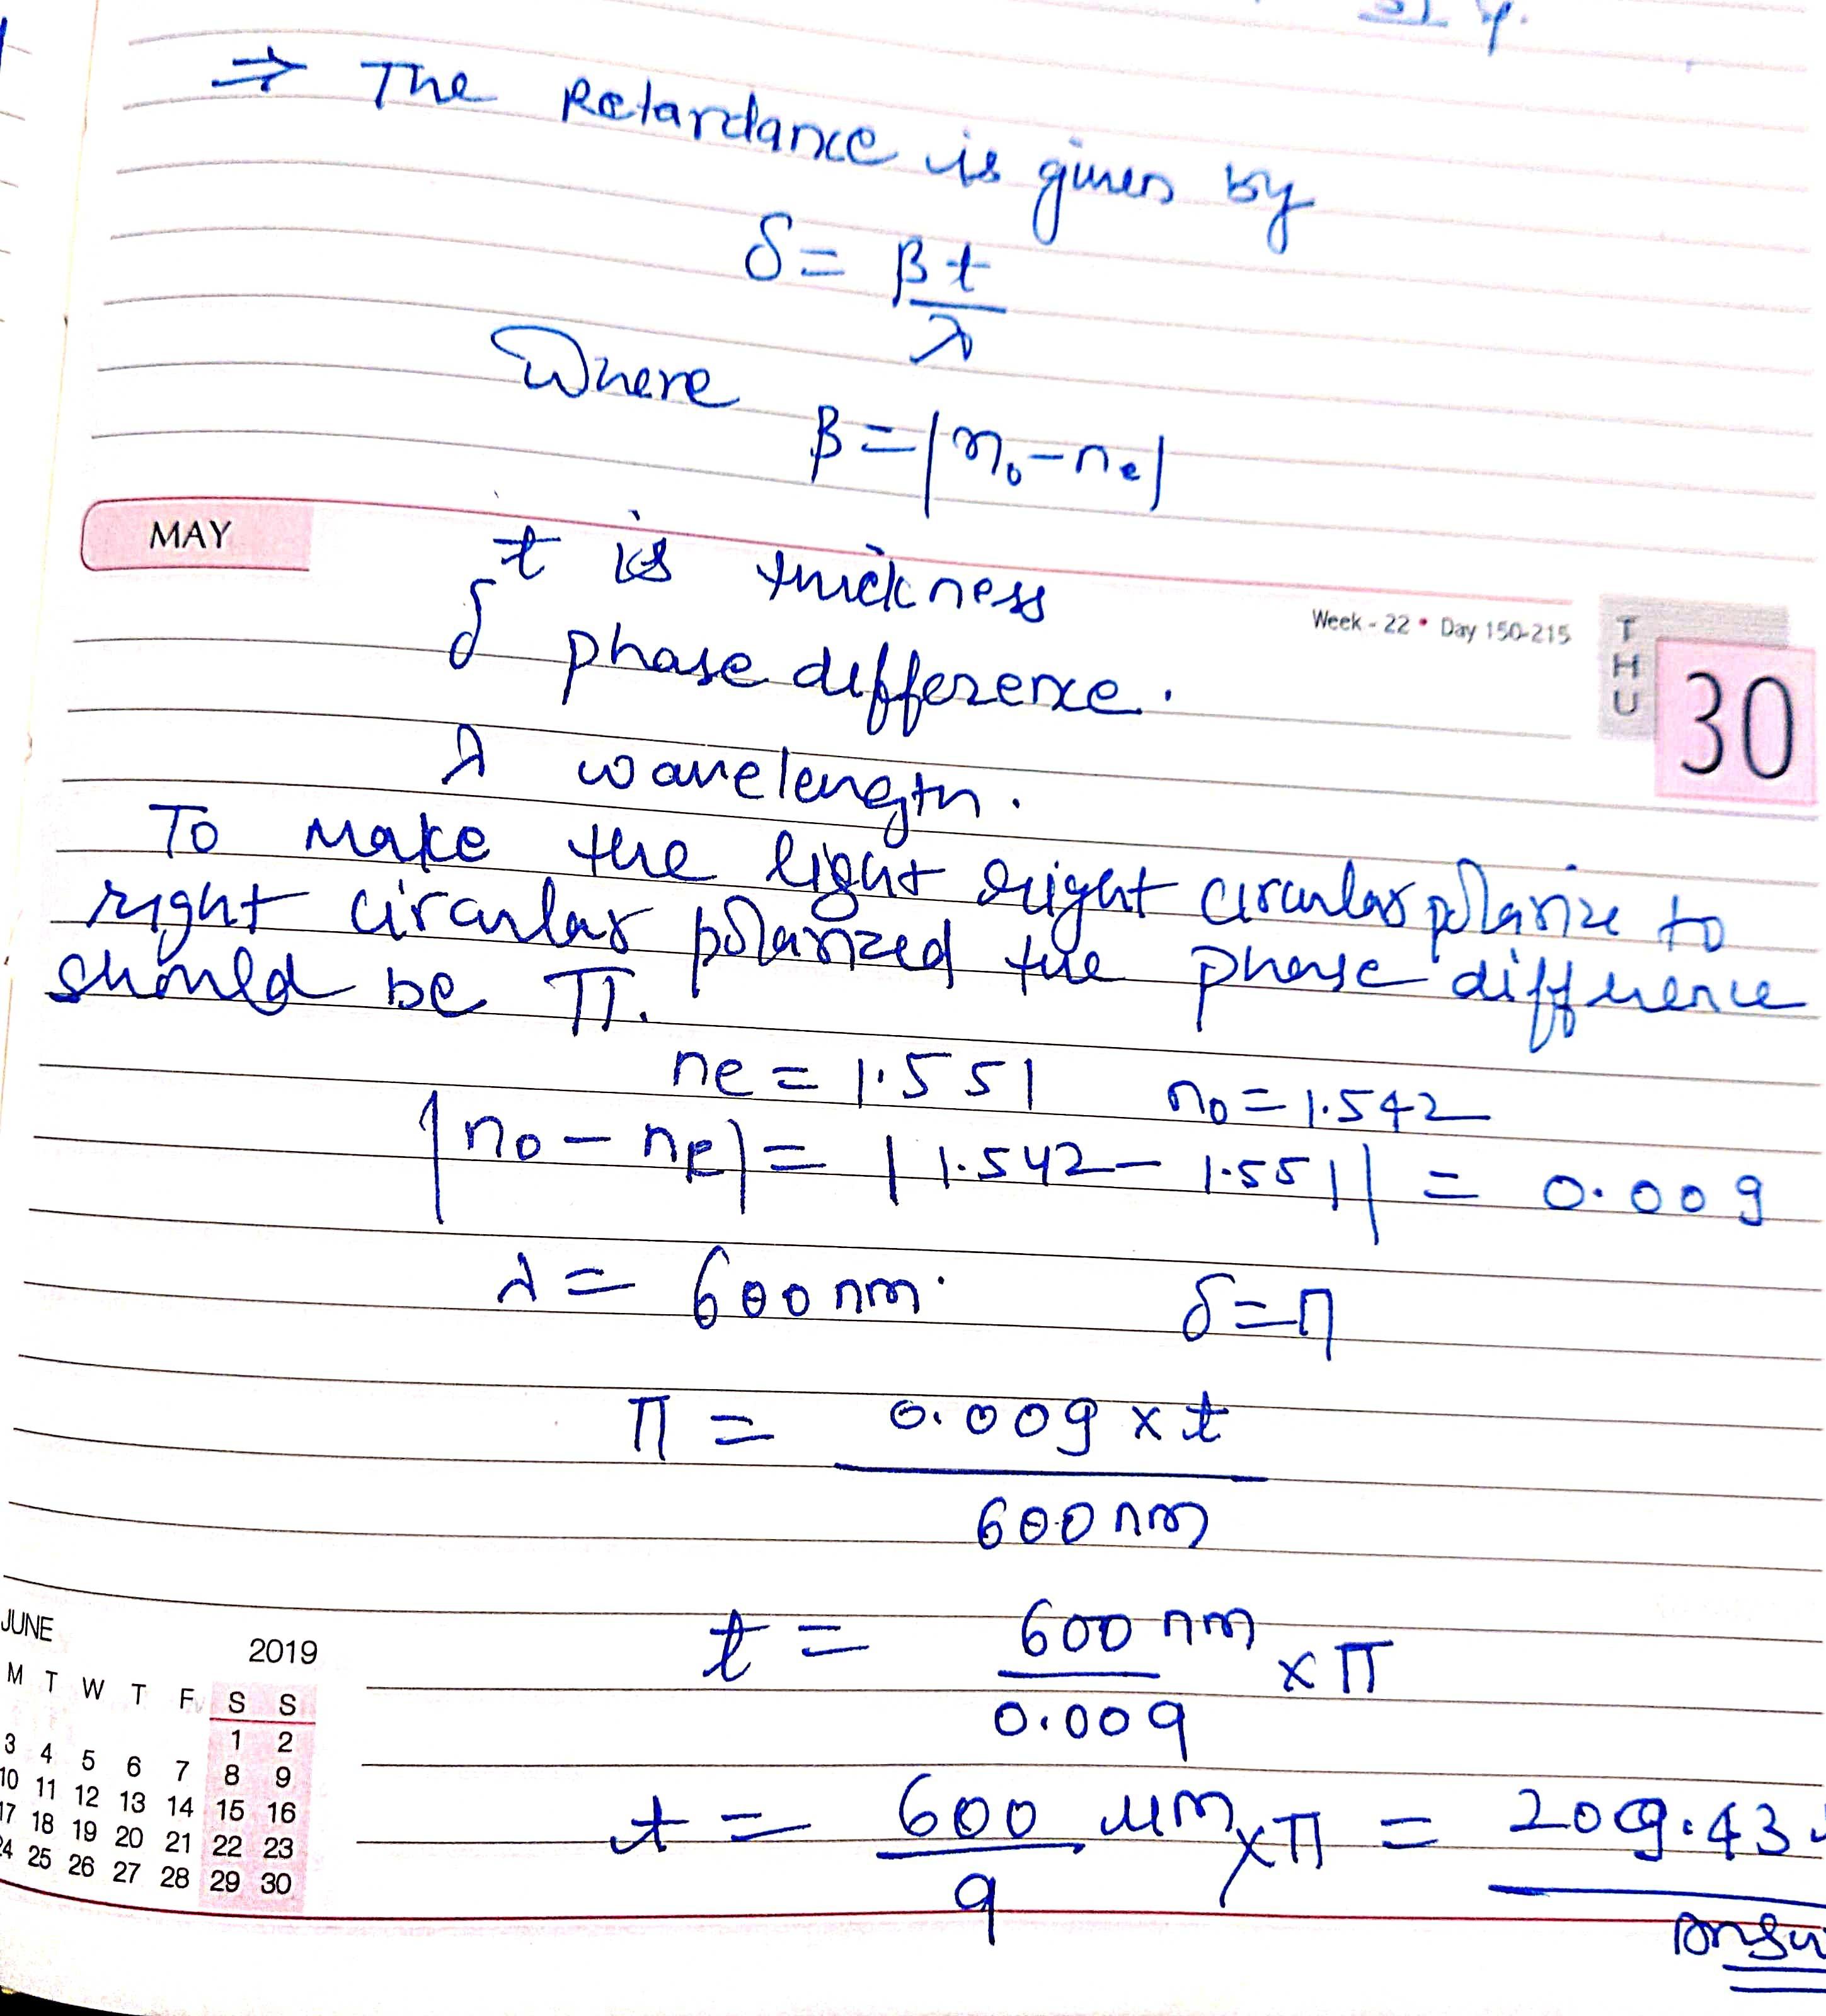 ⇒ The Retardance is given by
δ = βt/λ
Where
β = |n₀ - nₑ|
MAY
t is thickness
Week - 22 • Day 150-215
THU
30
δ phase difference.
λ wavelength.
To make the light right circular polarize to
right circular polarized the phase difference
should be π.
ne = 1.551 n₀ = 1.542
|n₀ - nE| = |1.542 - 1.551| = 0.009
λ = 600 nm. δ = π
π = 0.009 × t / 600 nm
t = 600 nm / 0.009 × π
t = 600 μm / 9 × π = 209.43
JUNE 2019
M T W T F S S
1 2
3 4 5 6 7 8 9
10 11 12 13 14 15 16
17 18 19 20 21 22 23
24 25 26 27 28 29 30